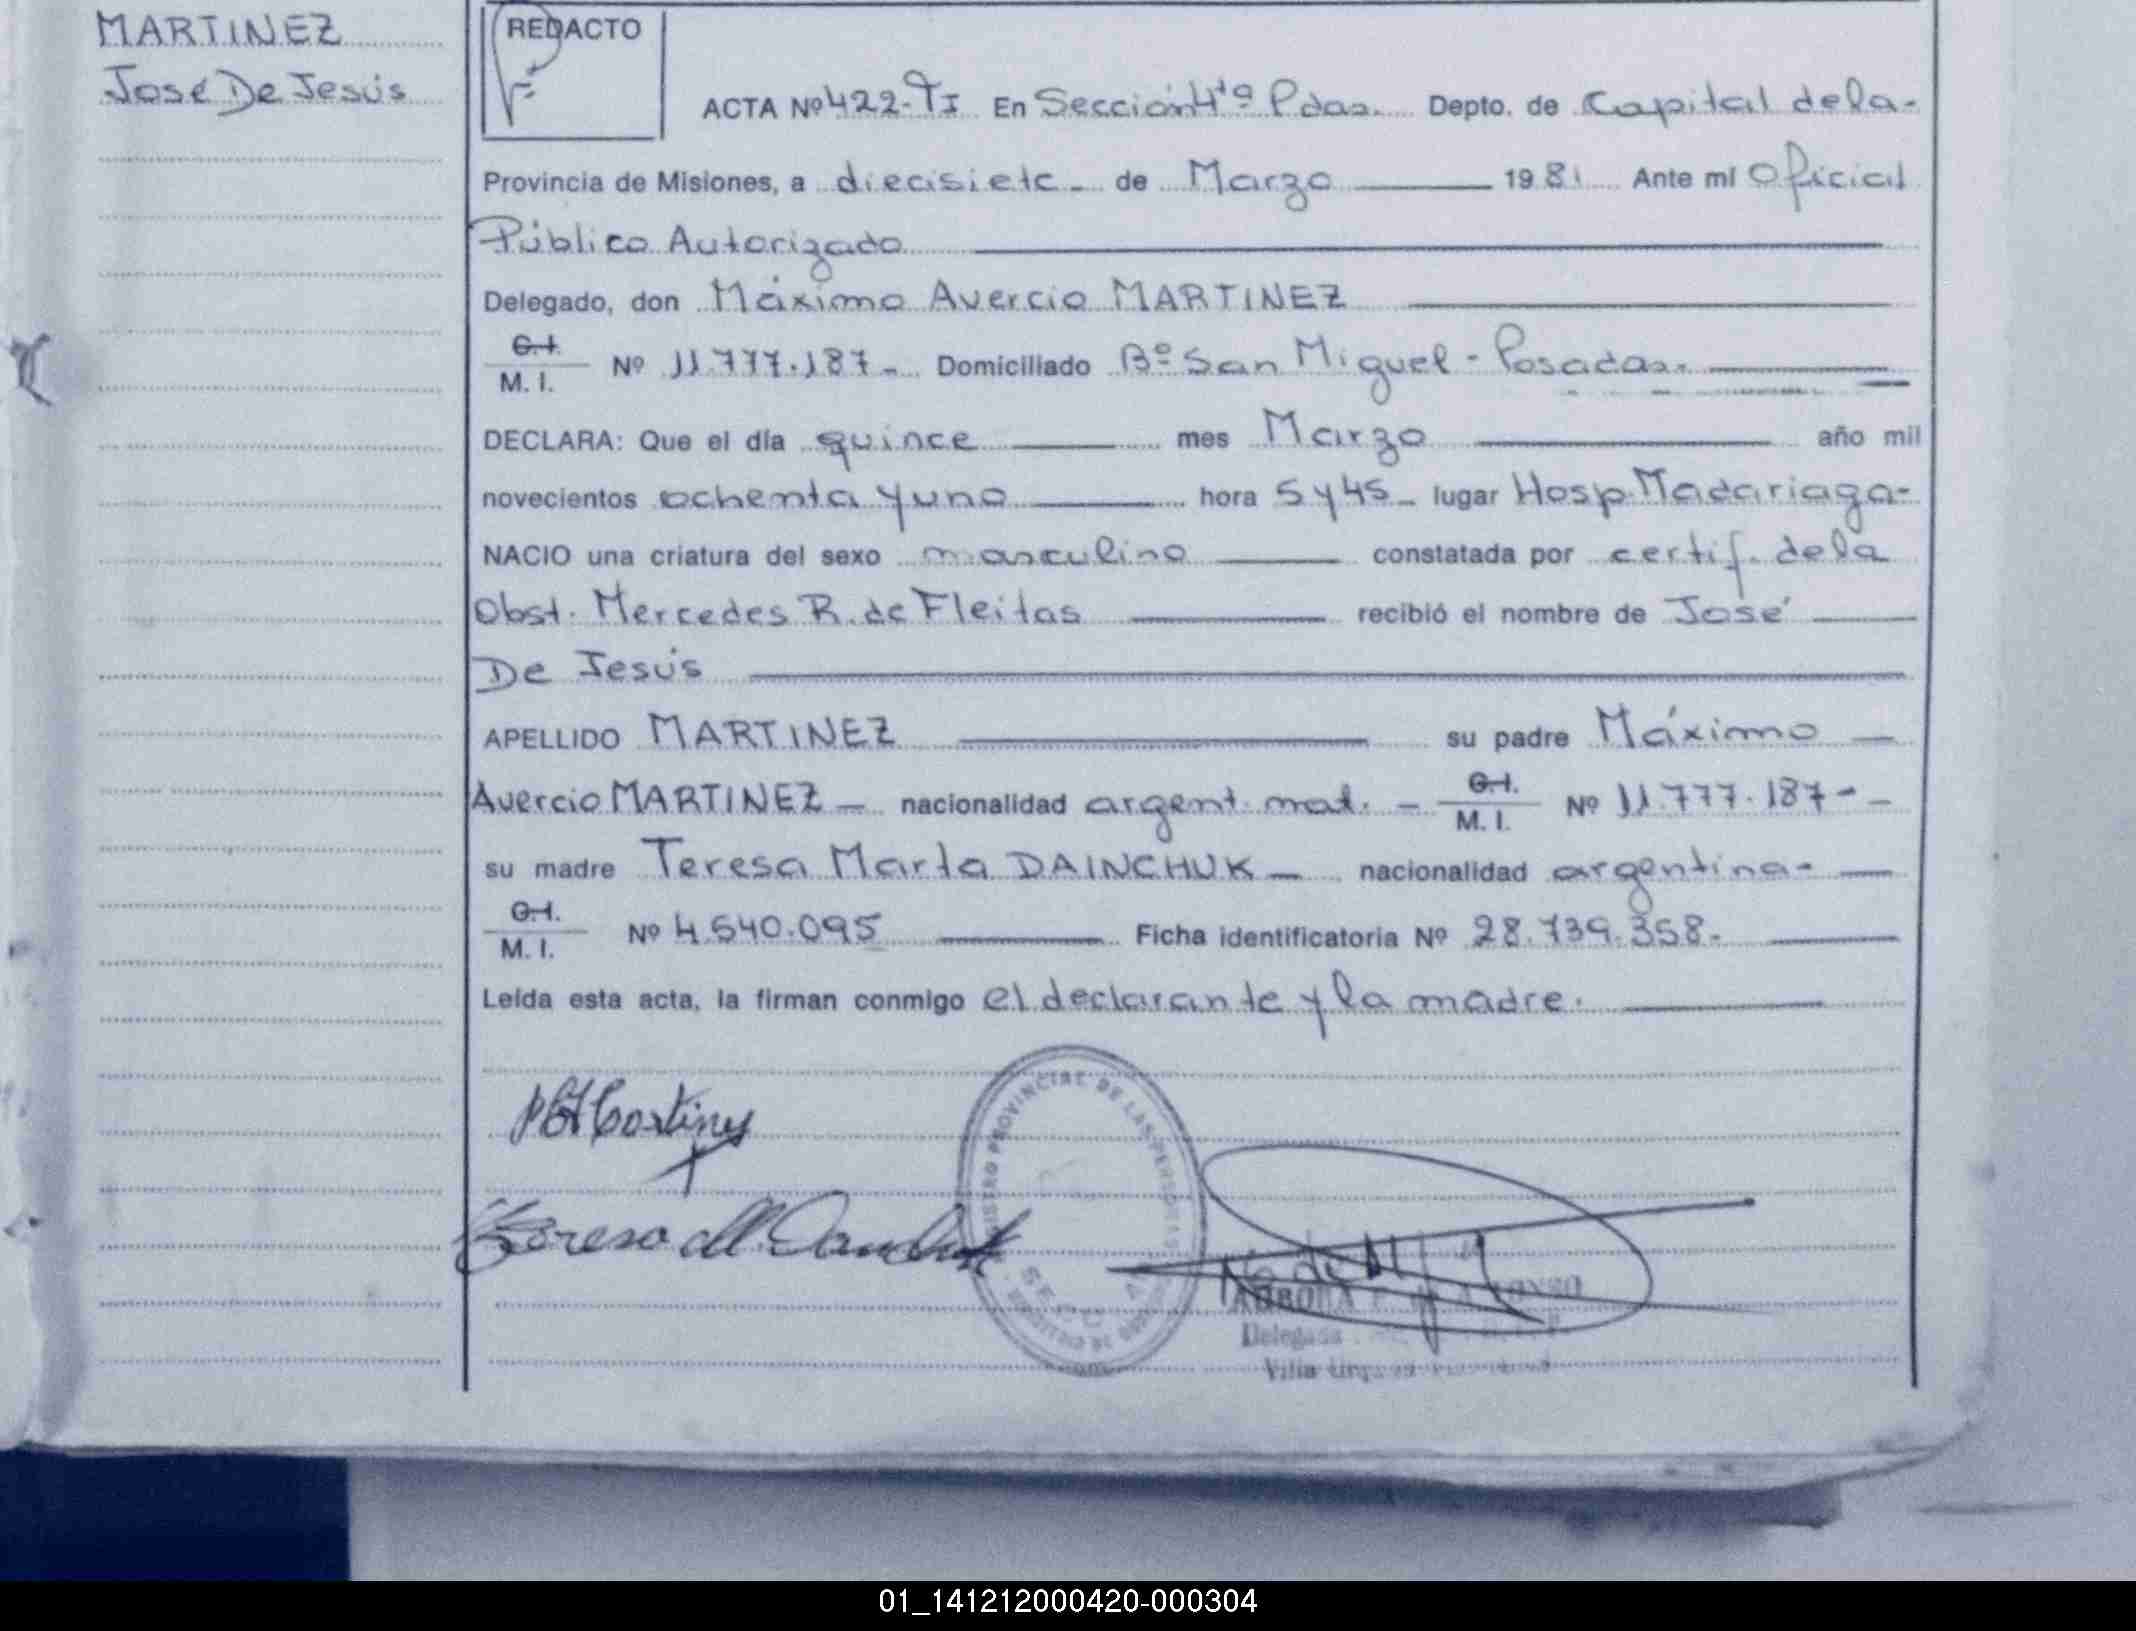 MARTINEZ
José De Jesús
REDACTO
ACTA Nº 422-TI En Sección 4ta Pdas. Depto. de Capital de la-
Provincia de Misiones, a diecisiete - de Marzo 1981 Ante mí Oficial
Público Autorizado
Delegado, don Máximo Avercio MARTINEZ
C.I. M. I. Nº 11.777.187- Domiciliado Bº San Miguel - Posadas.
DECLARA: Que el día quince mes Marzo año mil
novecientos ochenta y uno hora 5 y 45 - lugar Hosp. Madariaga-
NACIO una criatura del sexo masculino constatada por certif. de la
Obst. Mercedes R. de Fleitas recibió el nombre de José
De Jesús
APELLIDO MARTINEZ su padre Máximo -
Avercio MARTINEZ - nacionalidad argent. nat. - C.I. M. I. Nº 11.777.187-
su madre Teresa Marta DAINCHUK - nacionalidad argentina-
C.I. M. I. Nº 4.540.095 Ficha identificatoria Nº 28.739.358-
Leída esta acta, la firman conmigo el declarante y la madre.
PROVINCIAL DE LAS PERSONAS
Delegada
Villa
01_141212000420-000304